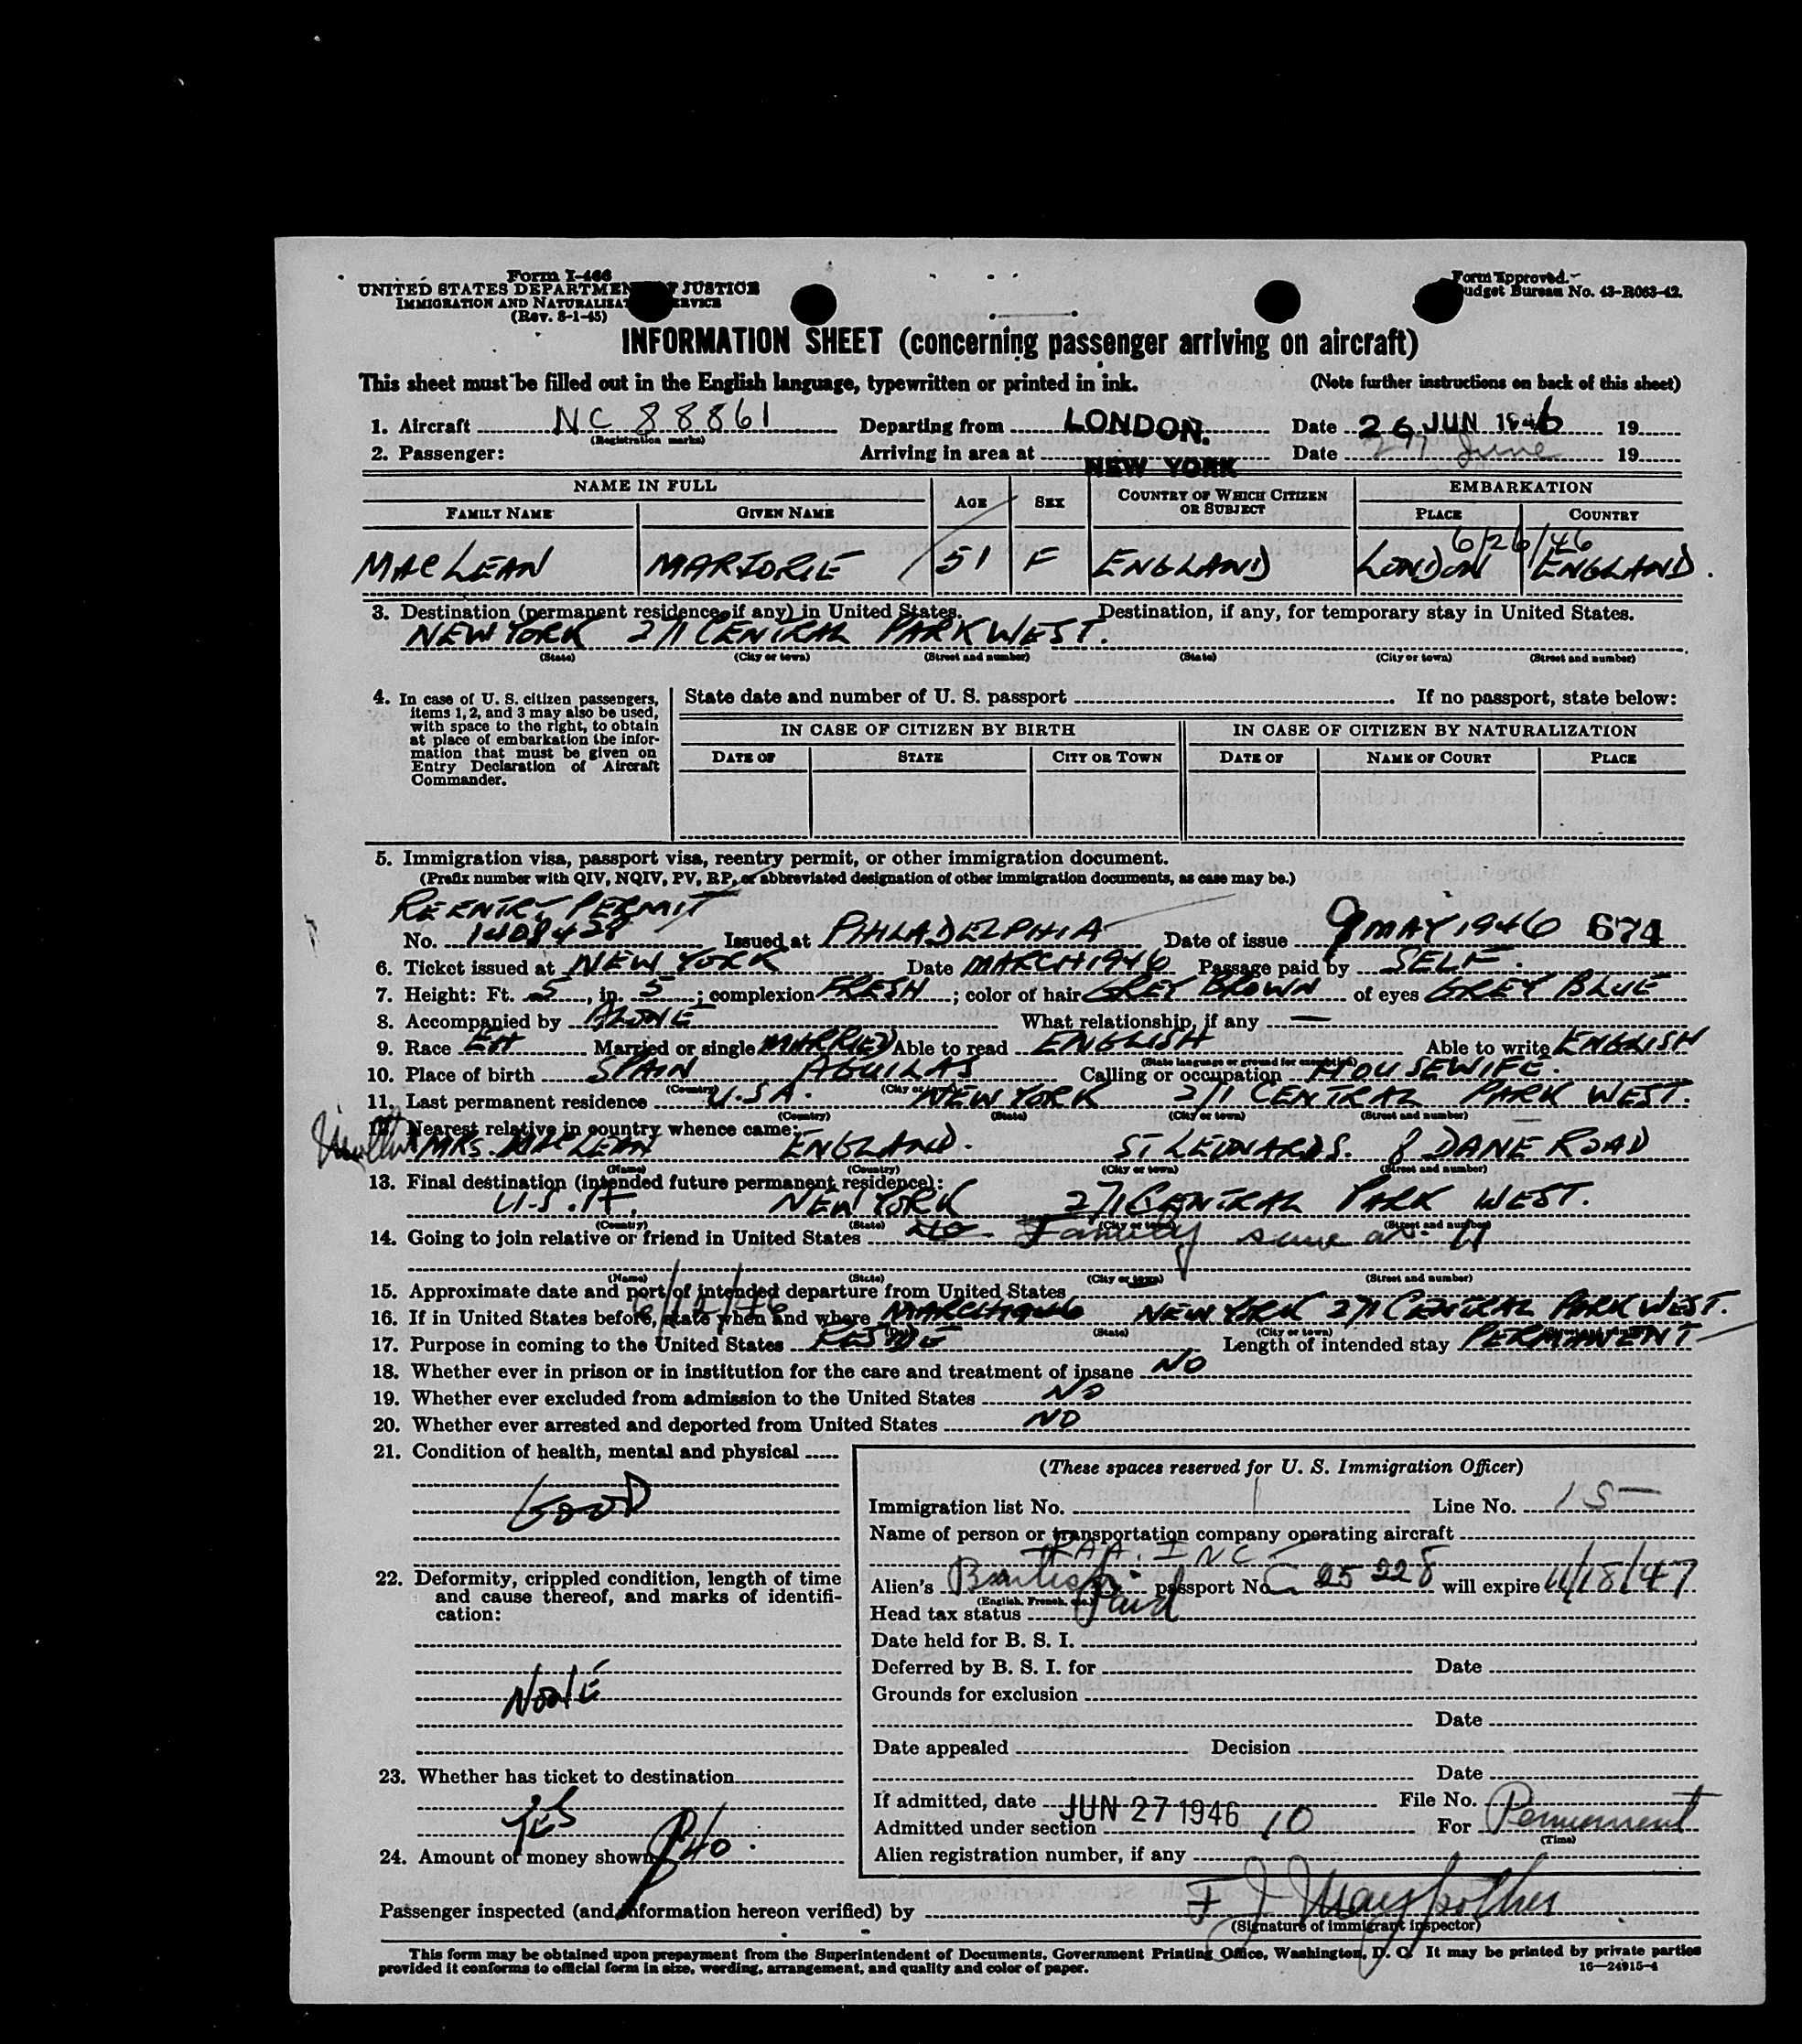 Form I-466
UNITED STATES DEPARTMENT OF JUSTICE
IMMIGRATION AND NATURALIZATION SERVICE
(Rev. 8-1-45)
Form Approved.
Budget Bureau No. 43-R063-42.
INFORMATION SHEET (concerning passenger arriving on aircraft)
This sheet must be filled out in the English language, typewritten or printed in ink. (Note further instructions on back of this sheet)
1. Aircraft NC 88861 Departing from LONDON. Date 26 JUN 1946 19
(Registration marks)
2. Passenger: Arriving in area at NEW YORK Date 27 June 19
NAME IN FULL AGE SEX COUNTRY OF WHICH CITIZEN OR SUBJECT EMBARKATION
FAMILY NAME GIVEN NAME PLACE COUNTRY
6/26/46
MACLEAN MARJORIE 51 F ENGLAND LONDON ENGLAND.
3. Destination (permanent residence, if any) in United States. Destination, if any, for temporary stay in United States.
NEW YORK 271 CENTRAL PARK WEST.
(State) (City or town) (Street and number) (State) (City or town) (Street and number)
4. In case of U. S. citizen passengers, items 1, 2, and 3 may also be used, with space to the right, to obtain at place of embarkation the information that must be given on Entry Declaration of Aircraft Commander.
State date and number of U. S. passport If no passport, state below:
IN CASE OF CITIZEN BY BIRTH IN CASE OF CITIZEN BY NATURALIZATION
DATE OF STATE CITY OR TOWN DATE OF NAME OF COURT PLACE
5. Immigration visa, passport visa, reentry permit, or other immigration document.
(Prefix number with QIV, NQIV, PV, RP, or abbreviated designation of other immigration documents, as case may be.)
REENTRY PERMIT
No. 1408428 Issued at PHILADELPHIA Date of issue 9 MAY 1946 674
6. Ticket issued at NEW YORK Date MARCH 1946 Passage paid by SELF.
7. Height: Ft. 5, in. 5; complexion FRESH; color of hair GREY BROWN of eyes GREY BLUE
8. Accompanied by ALONE What relationship, if any —
9. Race Married or single MARRIED Able to read ENGLISH Able to write ENGLISH
(State language or ground for exemption)
10. Place of birth SPAIN AGUILAS Calling or occupation HOUSEWIFE.
(Country) (City or town)
11. Last permanent residence U.S.A. NEW YORK 271 CENTRAL PARK WEST.
(Country) (State) (City or town) (Street and number)
12. Nearest relative in country whence came:
MRS. MACLEAN ENGLAND. ST LEONARDS. 8 DANE ROAD
(Name) (Country) (City or town) (Street and number)
13. Final destination (intended future permanent residence):
U.S.A. NEW YORK 271 CENTRAL PARK WEST.
(Country) (State) (City or town) (Street and number)
14. Going to join relative or friend in United States Family same as 11
(Name) (State) (City or town) (Street and number)
15. Approximate date and port of intended departure from United States
16. If in United States before, state when and where MARCH 1946 NEW YORK 271 CENTRAL PARK WEST.
(State) (City or town)
17. Purpose in coming to the United States RESIDE Length of intended stay PERMANENT
18. Whether ever in prison or in institution for the care and treatment of insane NO
19. Whether ever excluded from admission to the United States NO
20. Whether ever arrested and deported from United States NO
21. Condition of health, mental and physical
GOOD
22. Deformity, crippled condition, length of time and cause thereof, and marks of identification:
NONE
23. Whether has ticket to destination
YES
24. Amount of money shown 40.
(These spaces reserved for U. S. Immigration Officer)
Immigration list No. 1 Line No. 15
Name of person or transportation company operating aircraft
INC
Alien's British passport No. C 25228 will expire 11/18/47
(English, French, etc.)
Head tax status Paid
Date held for B. S. I.
Deferred by B. S. I. for Date
Grounds for exclusion
Date
Date appealed Decision
Date
If admitted, date JUN 27 1946 File No.
Admitted under section 10 For Permanent
(Time)
Alien registration number, if any
Passenger inspected (and information hereon verified) by F J
(Signature of immigrant inspector)
This form may be obtained upon prepayment from the Superintendent of Documents, Government Printing Office, Washington, D. C. It may be printed by private parties
provided it conforms to official form in size, wording, arrangement, and quality and color of paper. 16—24915-4